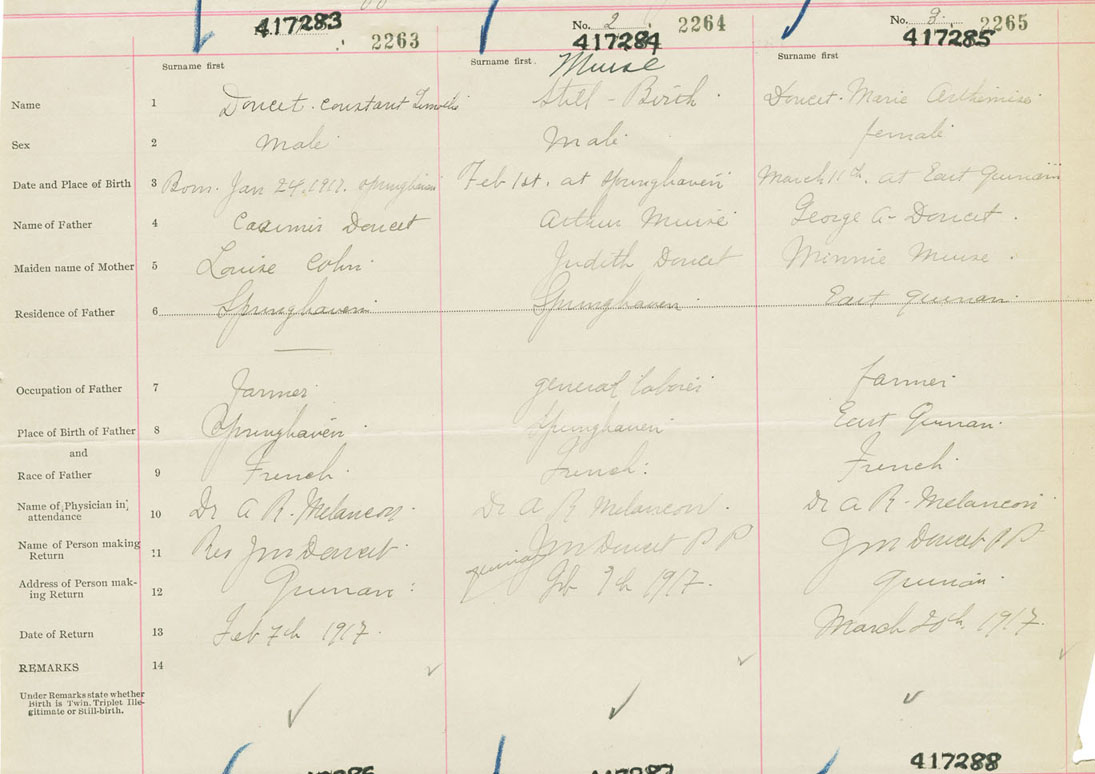 417283
2263
No. 2
2264
417284
No. 3.
2265
417285
Surname first
Surname first.
Muise
Surname first
Name 1 Doucet. Constant Still-Birth. Doucet. Marie
Sex 2 Male Male female
Date and Place of Birth 3 Born. Jan 24. 1917. Springhaven Feb 1st. at Springhaven March 11th. at East Quinan
Name of Father 4 Casimir Doucet Arthur Muise George A- Doucet.
Maiden name of Mother 5 Louise Judith Doucet Minnie Muise.
Residence of Father 6 Springhaven Springhaven East Quinan.
Occupation of Father 7 Farmer general laborer farmer
Place of Birth of Father 8 Springhaven. Springhaven East Quinan.
and
Race of Father 9 French. French: French.
Name of Physician in attendance 10 Dr A R. Melancon. Dr A R Melancon. Dr A R- Melancon
Name of Person making Return 11 Rev JM Doucet. JM Doucet P P JM Doucet P P.
Address of Person making Return 12 Quinan: Quinan Feb 7th 1917. Quinan.
Date of Return 13 Feb 7th 1917. March 20th. 1917.
REMARKS 14
Under Remarks state whether
Birth is Twin. Triplet Ille-
gitimate or Still-birth.
417286
417287
417288